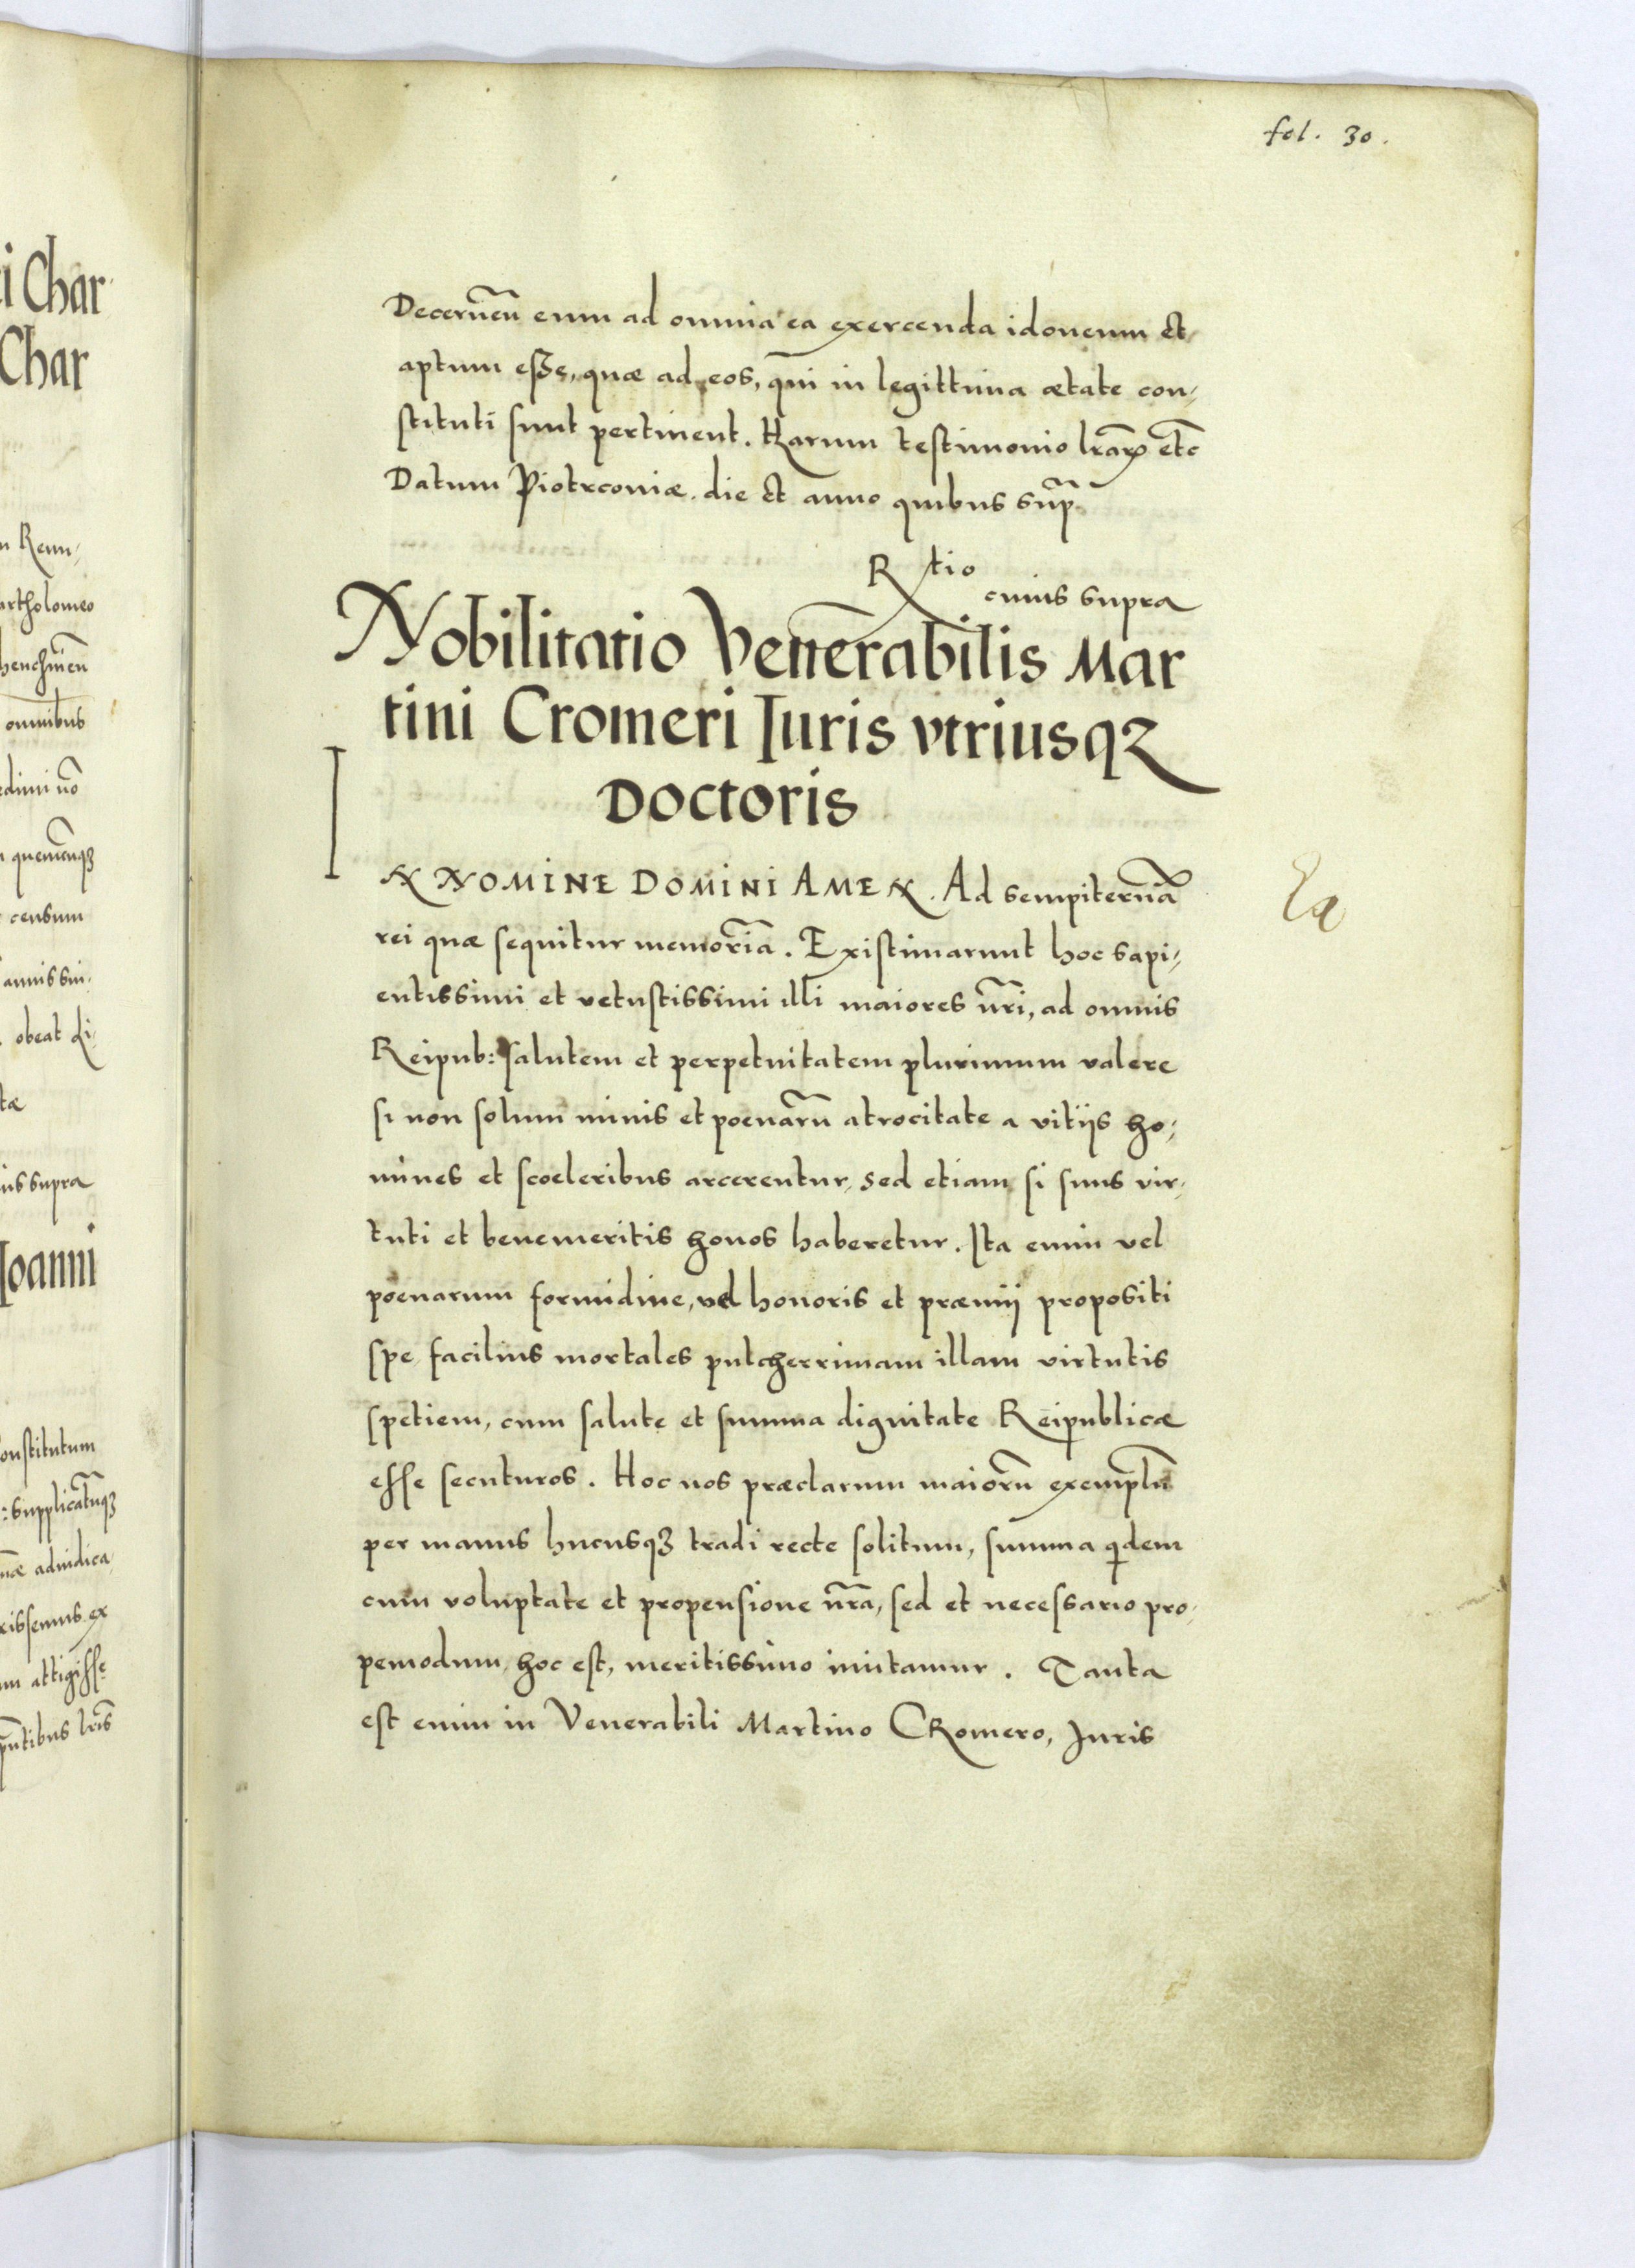 fol. 30.
i Char
Char
n Renu,
artholomeo
omnibus
quemcuqȝ
censum
annis sui
obeat Li
tæ
us supra
Joanni
onstitutum
: supplicatuqȝ
adiudica,
rissemus ex
m attigisse
pñtibus lr̃is
Decerneñ eum ad omnia ea exercenda idoneum et
aptum esse, quæ ad eos, qui in legittima ætate con,
stituti sunt pertinent. Harum testimonio lrãꝝ etc
Datum Piotrconiæ. die et anno quibus sup̃
R tio
cuius supra
Nobilitatio Venerabilis Mar
tini Cromeri Iuris vtriusqȝ
Doctoris
IN NOMINE DOMINI AMEN. Ad sempiternã
rei quæ sequitur memoriã. Existimarunt hoc sapi,
entissimi et vetustissimi illi maiores nr̃i, ad omnis
Reipub: salutem et perpetuitatem plurimum valere
si non solum minis et poenarũ atrocitate a vitijs ho,
mines et scoeleribus arcerentur, sed etiam si suus vir,
tuti et benemeritis honos haberetur. Ita enim vel
poenarum formidine, vel honoris et præmij propositi
spe facilius mortales pulcherrimam illam virtutis
spetiem, cum salute et summa dignitate Reipublicæ
esse secuturos. Hoc nos præclarum maiorũ exemplũ
per manus hucusqȝ tradi recte solitum, summa qdem
cum voluptate et propensione nr̃a, sed et necessario pro,
pemodum, hoc est, meritissimo imitamur. Tanta
est enim in Venerabili Martino CRomero, Juris